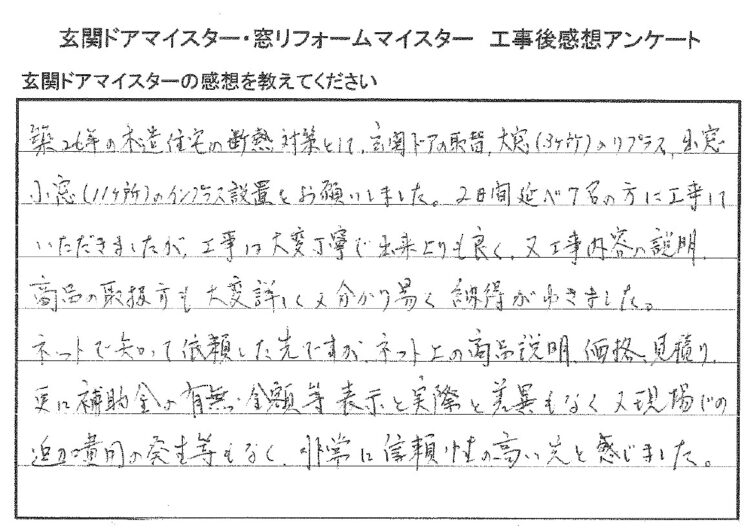 玄関ドアマイスター・窓リフォームマイスター　工事後感想アンケート
玄関ドアマイスターの感想を教えてください
築26年の木造住宅の断熱対策として、玄関ドアの取替、大窓(3ヶ所)のリプラス、出窓
小窓(11ヶ所)のインプラス設置をお願いしました。2日間延べ7名の方に工事して
いただきましたが、工事は大変丁寧で出来上りも良く、又工事内容の説明、
商品の取扱方も大変詳しく又分かり易く納得がゆきました。
ネットで知って依頼した先ですが、ネット上の商品説明、価格、見積り、
更に補助金の有無・金額等表示と実際と差異もなく又現場での
追加費用の発生等もなく、非常に信頼性の高い先と感じました。